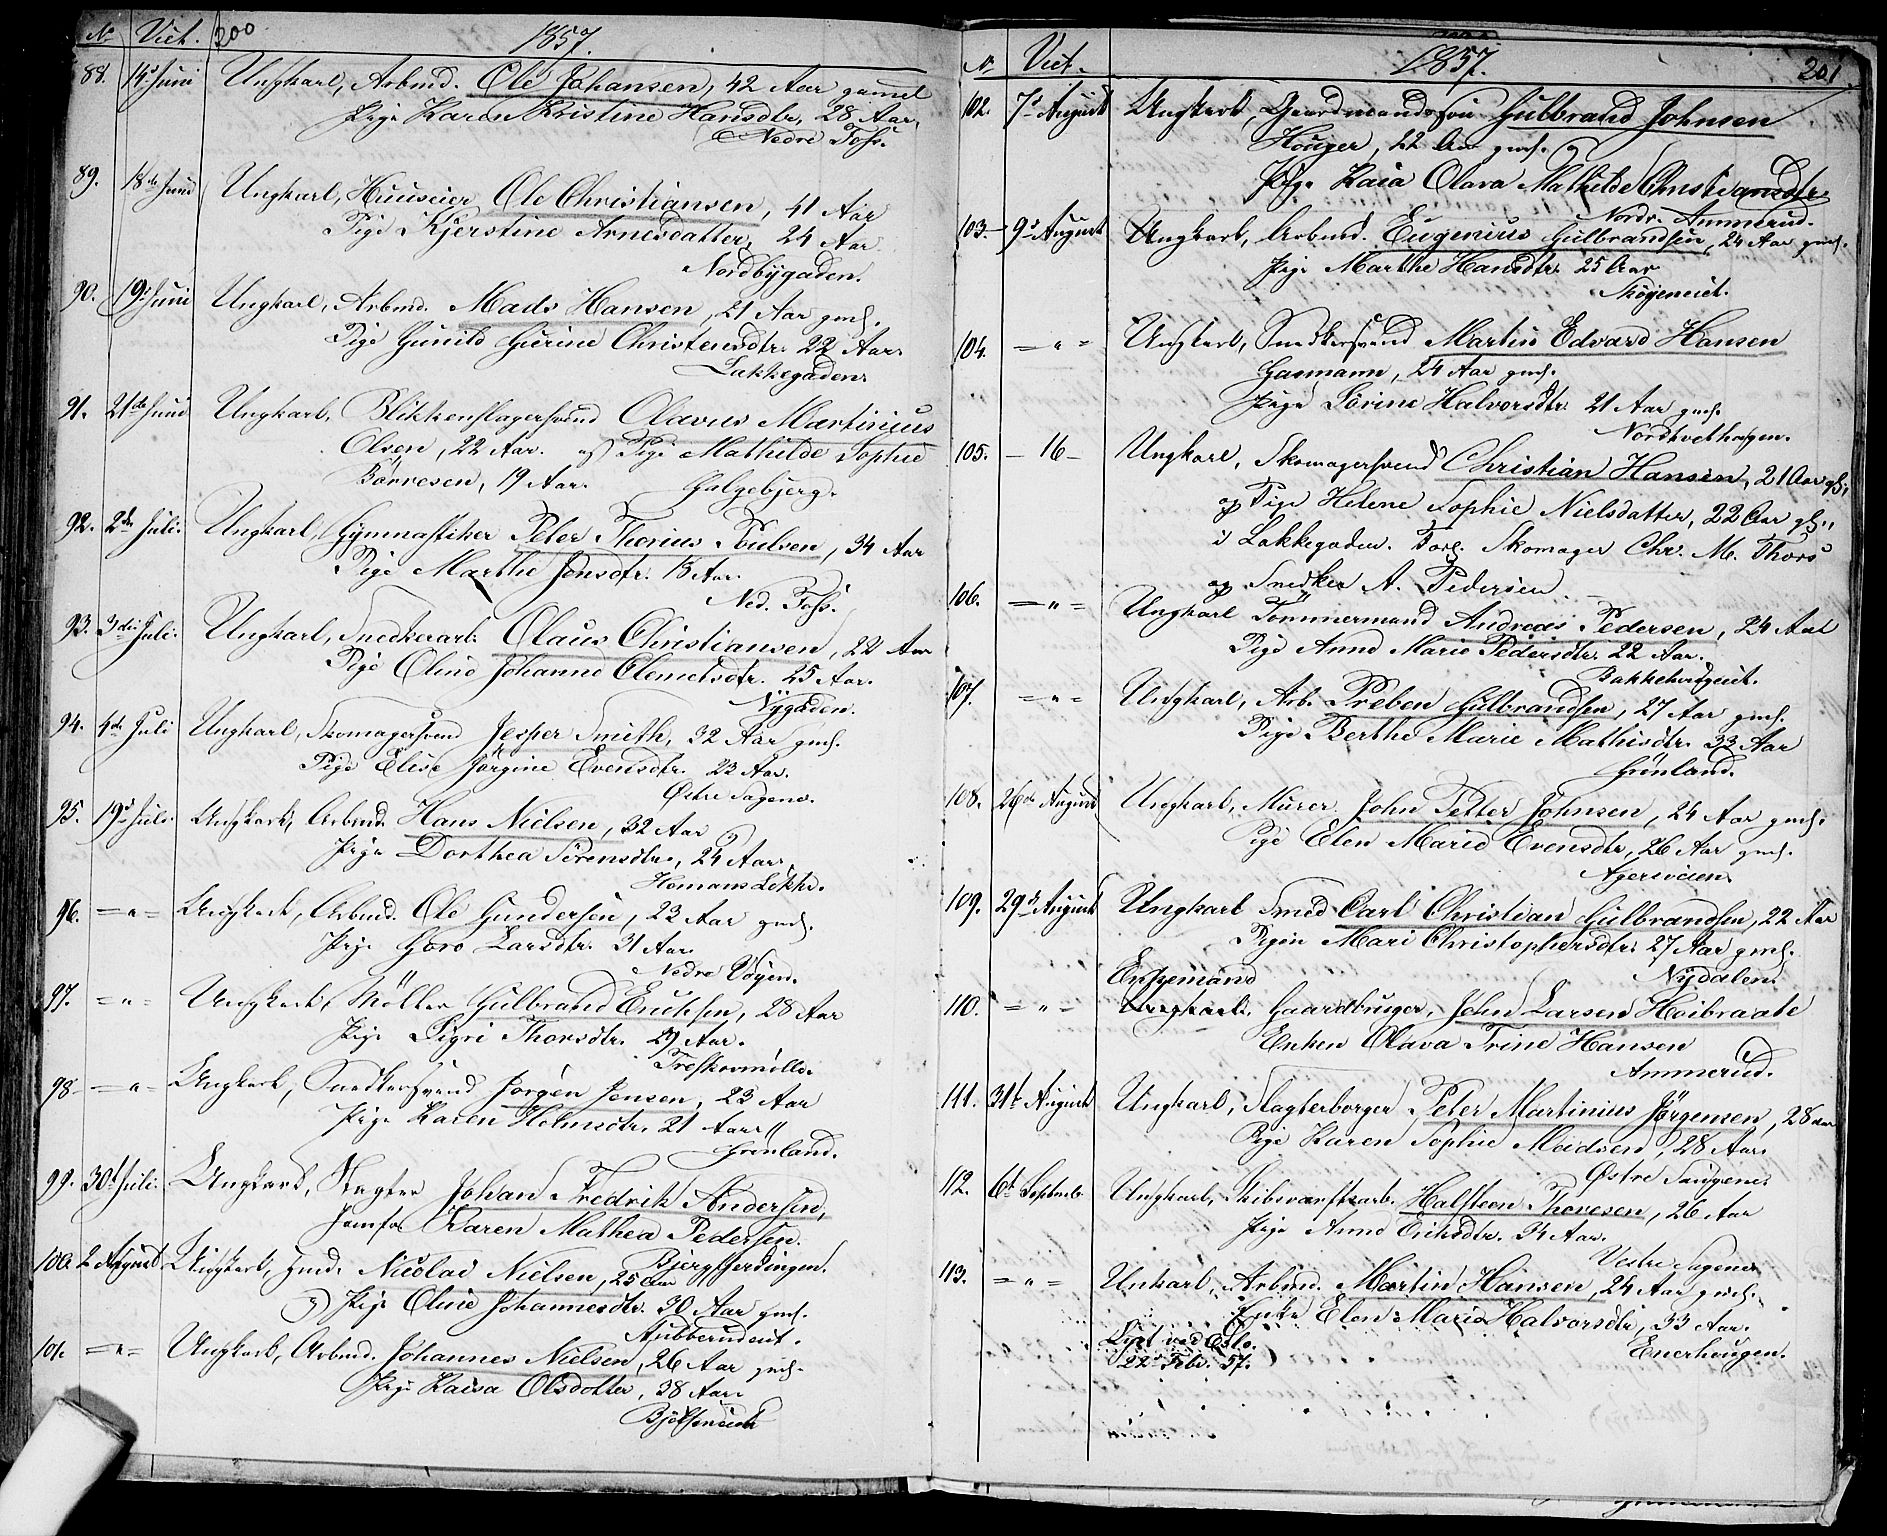 No Viet. 200 1857.
88. 14de Juni Ungkarl, Arbmd. Ole Johansen, 42 Aar gammel
Pige Karen Kristine Hansdtr. 28 Aar,
Nedre Foss.
89. 18de Juni Ungkarl, Huuseier Ole Christiansen, 41 Aar
Pige Kjerstine Arnesdatter, 24 Aar
Nordbygaden.
90. 19de Juni Ungkarl, Arbmd. Mads Hansen, 21 Aar gml.
Pige Gunild Gurine Christensdtr. 22 Aar.
Lakkegaden.
91. 21de Juni Ungkarl, Blikkenslagersvend Olavus Martinius
Olsen, 22 Aar. og Pige Mathilde Sophie
Börresen, 19 Aar. Galgebjerg.
92. 2den Juli. Ungkarl, Gymnastiker Peter Thorius Poulsen, 34 Aar
Pige Marthe Jensdtr. Aar.
Ned. Foss.
93. 3die Juli. Ungkarl, Snedkerarb. Olaus Christiansen, 22 Aar
Pige Oline Johanne Clemetsdtr. 25 Aar.
Nygaden.
94. 4de Juli Ungkarl, Skomagersvend Jesper Smith, 32 Aar gml.
Pige Elise Jörgine Evensdtr. 23 Aar.
Østre Sagene.
95. 19de Juli. Ungkarl, Arbmd. Hans Nielsen, 32 Aar
Pige Dorthea Sörensdtr., 24 Aar.
Homans Løkke.
96. — " — Ungkarl, Arbmd. Ole Gundersen, 23 Aar gml.
Pige Goro Larsdtr. 31 Aar.
Nedre Vøyen.
97. = " = Ungkarl, Möller Gulbrand Erichsen, 28 Aar
Pige Sigri Thorsdtr. 29 Aar.
Treskovmölle.
98. — " — Ungkarl, Snedkersvend Jørgen Jensen, 23 Aar
Pige Karen Holmsdtr. 21 Aar "
Grønland.
99. 30te Juli. Ungkarl, Slagter Johan Fredrik Andersen,
Jomfr. Karen Mathea Pedersen.
Bjerggjerdingen.
100. 2 August Ungkarl, Smed. Nicolai Nielsen, 25 Aar
og Pige Oline Johannesdtr. 30 Aar gml.
Stubberudeiet.
101. = " = Ungkarl, Arbmd. Johannes Nielsen, 26 Aar gml.
Pige Kaisa Olsdotter, 38 Aar.
Bjölseneiet
No Viet. 1857. 201
102. 7de August Ungkarl, Gaardmandssøn Gulbrand Johnsen
Houger, 22 Aar gml. og
Pige Kaia Olava Mathilde Christiansdtr.
Nordr. Ammerud.
103. 9de August Ungkarl, Arbmd. Eugenius Gulbrandsen, 24 Aar gml.
Pige Marthe Hansdtr. 25 Aar
Skøyeneiet.
104. = " = Ungkarl, Snedkersvend Martin Edvard Hansen
Gasmann, 24 Aar gml.
Pige Sörine Halvorsdtr. 21 Aar gml.
Nordtvethagen.
105. — 16 — Ungkarl, Skomagersvend Christian Hansen, 21 Aar gl.,
og Pige Helene Sophie Nielsdatter, 22 Aar gl.,
i Lakkegaden. Forl. Skomager Chr. M. Thors
og Snedker A. Pedersen.
106. = " = Ungkarl Tömmermand Andreas Pedersen, 24 Aar
Pige Anne Marie Pedersdtr. 22 Aar.
Bakkehougeiet.
107. = " = Ungkarl, Arb. Preben Gulbrandsen, 27 Aar gml.
Pige Berthe Marie Mathisdtr. 33 Aar
Grønland.
108. 26de August Ungkarl, Murer John Petter Johnsen, 24 Aar gml.
Pige Elen Marie Evensdtr, 26 Aar gml.
Agersveien.
109. 29de August Ungkarl Smed Carl Christian Gulbrandsen, 22 Aar
Pigen Mari Christophersdtr. 27 Aar gml.
Nydalen.
Enkemand
110. = " = Ungkarl, Gaardbruger, John Larsen Høibraate
Enken Olava Trine Hansen
Ammerud.
111. 31te August Ungkarl, Slagterborger Peter Martinius Jørgensen, 28 Aar
Pige Karen Sophie Madsen, 28 Aar.
Østre Saugene
112. 6te Septembr Ungkarl, Skibsværftsarb. Halsteen Thoresen, 26 Aar
Pige Anne Eriksdtr. 34 Aar.
Vestre Sagene
113. = " = Unkarl, Arbmd. Martin Hansen, 24 Aar gml.
Enke Elen Marie Halvorsdtr, 33 Aar.
Enerhougen.
Lyst ved Oslo.
22 Febr. 57.